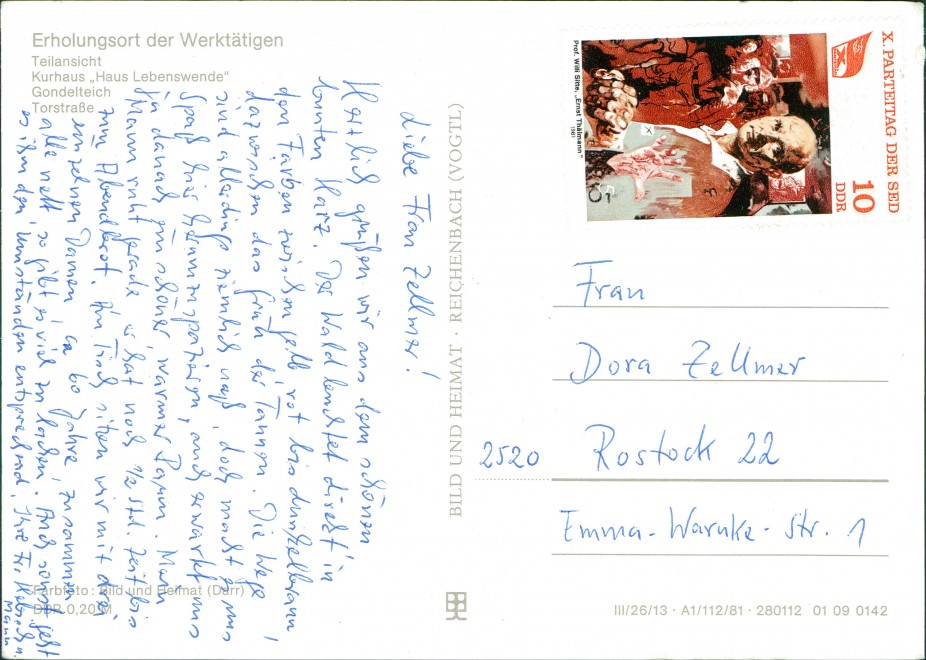 Erholungsort der Werktätigen
Teilansicht
Kurhaus „Haus Lebenswende“
Gondelteich
Torstraße
Liebe Frau Zellmer!
Herzlich grüßen wir aus dem schönen
bunten Harz. Der Wald leuchtet direkt in
den Farben zwischen gelb, rot bis dunkelbraun
dazwischen das Grün der Tannen. Die Wege
sind allerdings ziemlich naß, doch macht es uns
Spaß hier herumzuspazieren, auch erwartet uns
ja danach ein schöner, warmer Raum. Mein
Mann ruht gerade, es hat noch 1/2 Std. Zeit bis
zum Abendbrot. Am Tisch sitzen wir mit drei
einzelnen Damen, ca 60 Jahre, zusammen
alle nett, so gibt es viel zu lachen. Auch sonst geht
es ihm den Umständen entsprechend. Ihre Fr.
Mann
Farbfoto: Bild und Heimat (Dürr)
DDR 0,20 M
BILD UND HEIMAT · REICHENBACH (VOGTL)
X. PARTEITAG DER SED
10
DDR
Prof. Willi Sitte, „Ernst Thälmann“
1981
Frau
Dora Zellmer
2520 Rostock 22
Emma-Warnke-Str. 1
III/26/13 · A1/112/81 · 280112 01 09 0142